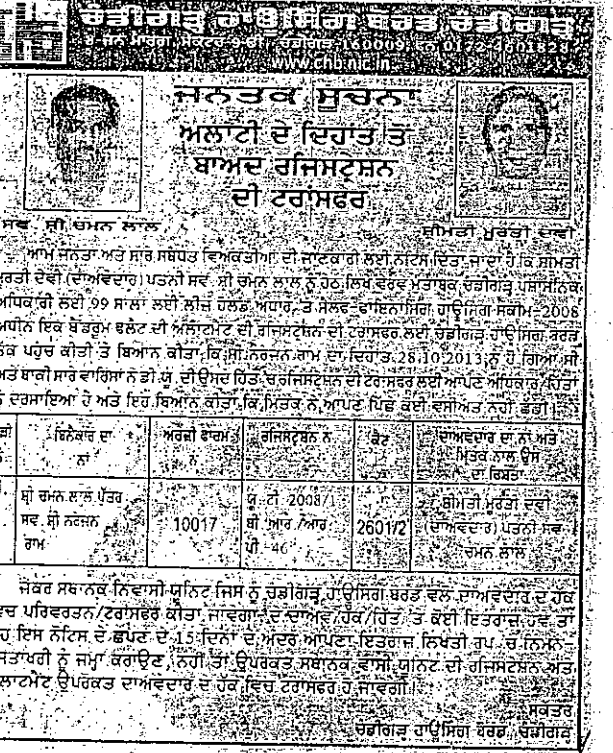 ਚੰਡੀਗੜ੍ਹ ਹਾਊਸਿੰਗ ਬੋਰਡ, ਚੰਡੀਗੜ੍ਹ
8, ਜਨ ਮਾਰਗ, ਸੈਕਟਰ 9-ਡੀ, ਚੰਡੀਗੜ੍ਹ-160009, ਫੋਨ 0172-4601828
www.chb.nic.in
ਜਨਤਕ ਸੂਚਨਾ
ਅਲਾਟੀ ਦੇ ਦਿਹਾਂਤ ਤੋਂ
ਬਾਅਦ ਰਜਿਸਟ੍ਰੇਸ਼ਨ
ਦੀ ਟਰਾਂਸਫਰ
ਸਵ. ਸ਼੍ਰੀ ਚਮਨ ਲਾਲ
ਸ਼੍ਰੀਮਤੀ ਮੂਰਤੀ ਦੇਵੀ
ਆਮ ਜਨਤਾ ਅਤੇ ਸਾਰੇ ਸਬੰਧਤ ਵਿਅਕਤੀਆਂ ਦੀ ਜਾਣਕਾਰੀ ਲਈ ਨੋਟਿਸ ਦਿੱਤਾ ਜਾਂਦਾ ਹੈ ਕਿ ਸ਼੍ਰੀਮਤੀ
ਮੂਰਤੀ ਦੇਵੀ (ਦਾਅਵੇਦਾਰ) ਪਤਨੀ ਸਵ. ਸ਼੍ਰੀ ਚਮਨ ਲਾਲ ਨੇ ਹੇਠ ਲਿਖੇ ਵੇਰਵੇ ਮੁਤਾਬਕ ਚੰਡੀਗੜ੍ਹ ਪ੍ਰਸ਼ਾਸਨਿਕ
ਅਧਿਕਾਰੀ ਲਈ 99 ਸਾਲਾਂ ਲਈ ਲੀਜ਼ ਹੋਲਡ ਅਧਾਰ ਤੇ ਸੈਲਫ-ਫਾਇਨਾਂਸਿੰਗ ਹਾਊਸਿੰਗ ਸਕੀਮ-2008
ਅਧੀਨ ਇਕ ਬੈਡਰੂਮ ਫਲੈਟ ਦੀ ਅਲਾਟਮੈਂਟ ਦੀ ਰਜਿਸਟ੍ਰੇਸ਼ਨ ਦੀ ਟਰਾਂਸਫਰ ਲਈ ਚੰਡੀਗੜ੍ਹ ਹਾਊਸਿੰਗ ਬੋਰਡ
ਤੱਕ ਪਹੁੰਚ ਕੀਤੀ ਤੇ ਬਿਆਨ ਕੀਤਾ ਕਿ ਸ਼੍ਰੀ ਨਰੰਜਨ ਰਾਮ ਦਾ ਦਿਹਾਂਤ 28.10.2013 ਨੂੰ ਹੋ ਗਿਆ ਸੀ
ਅਤੇ ਬਾਕੀ ਸਾਰੇ ਵਾਰਿਸਾਂ ਨੇ ਡੀ.ਯੂ. ਦੀ ਉਸਦੇ ਹਿੱਤ ਚ ਰਜਿਸਟ੍ਰੇਸ਼ਨ ਦੀ ਟਰਾਂਸਫਰ ਲਈ ਆਪਣੇ ਅਧਿਕਾਰ/ਹਿੱਤਾਂ
ਨੂੰ ਦਰਸਾਇਆ ਹੈ ਅਤੇ ਇਹ ਬਿਆਨ ਕੀਤਾ ਕਿ ਮ੍ਰਿਤਕ ਨੇ ਆਪਣੇ ਪਿੱਛੇ ਕੋਈ ਵਸੀਅਤ ਨਹੀਂ ਛੱਡੀ।
ਬਿਨੈਕਾਰ ਦਾ
ਨਾਂ
ਅਰਜ਼ੀ ਫਾਰਮ
ਨੰ.
ਰਜਿਸਟ੍ਰੇਸ਼ਨ ਨੰ.
ਕੋਟਾ
ਦਾਅਵੇਦਾਰ ਦਾ ਨਾਂ ਅਤੇ
ਮ੍ਰਿਤਕ ਨਾਲ ਉਸ
ਦਾ ਰਿਸ਼ਤਾ
ਸ਼੍ਰੀ ਚਮਨ ਲਾਲ ਪੁੱਤਰ
ਸਵ. ਸ਼੍ਰੀ ਨਰੰਜਨ
ਰਾਮ
10017
ਯੂ.ਟੀ. 2008/1
ਬੀ ਆਰ/ਆਰ
ਪੀ-46
2601/2
ਸ਼੍ਰੀਮਤੀ ਮੂਰਤੀ ਦੇਵੀ
(ਦਾਅਵੇਦਾਰ) ਪਤਨੀ ਸਵ.
ਚਮਨ ਲਾਲ
ਜੇਕਰ ਸਥਾਨਕ ਨਿਵਾਸੀ ਯੂਨਿਟ ਜਿਸ ਨੂੰ ਚੰਡੀਗੜ੍ਹ ਹਾਊਸਿੰਗ ਬੋਰਡ ਵੱਲੋਂ ਦਾਅਵੇਦਾਰ ਦੇ ਹੱਕ
ਵਿਚ ਪਰਿਵਰਤਨ/ਟਰਾਂਸਫਰ ਕੀਤਾ ਜਾਵੇਗਾ ਦੇ ਦਾਅਵੇ/ਹੱਕ/ਹਿੱਤ ਤੋਂ ਕੋਈ ਇਤਰਾਜ਼ ਹੋਵੇ ਤਾਂ
ਉਹ ਇਸ ਨੋਟਿਸ ਦੇ ਛਪਣ ਦੇ 15 ਦਿਨਾਂ ਦੇ ਅੰਦਰ ਆਪਣਾ ਇਤਰਾਜ਼ ਲਿਖਤੀ ਰੂਪ ਚ ਨਿਮਨ-
ਹਸਤਾਖਰੀ ਨੂੰ ਜਮ੍ਹਾਂ ਕਰਾਉਣ, ਨਹੀਂ ਤਾਂ ਉਪਰੋਕਤ ਸਥਾਨਕ ਵਾਸੀ ਯੂਨਿਟ ਦੀ ਰਜਿਸਟ੍ਰੇਸ਼ਨ ਅਤੇ
ਅਲਾਟਮੈਂਟ ਉਪਰੋਕਤ ਦਾਅਵੇਦਾਰ ਦੇ ਹੱਕ ਵਿਚ ਟਰਾਂਸਫਰ ਹੋ ਜਾਵੇਗੀ।
ਸਕੱਤਰ
ਚੰਡੀਗੜ੍ਹ ਹਾਊਸਿੰਗ ਬੋਰਡ, ਚੰਡੀਗੜ੍ਹ